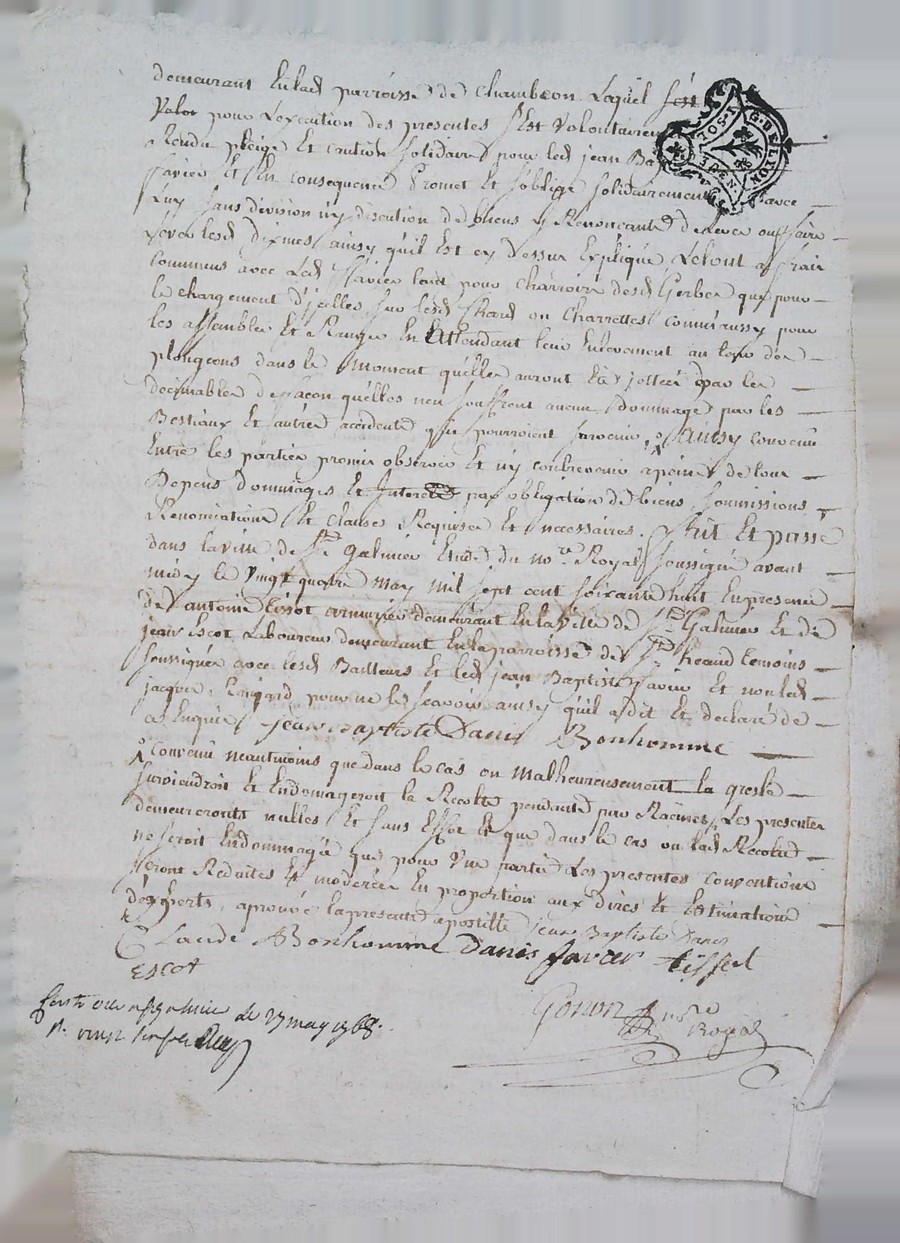 demeurant En lad parroisse de Chambeon Laquel
Valoir pour L'execution des presentes s'Est Volontairem
Rendu pleige Et caution solidaire pour led jean Ba
favier Et En consequence Promet Et s'oblige solidairement avec
Luy sans division n'y discution de biens y Renoncant de Lever ou faire
Lever lesd dixmes ainsy qu'il Est cy dessus Expliqué Le tout a frais
communs avec Led favier tant pour charroire desd Gerbes que pour
le chargement d'jcelles sur lesd Chard ou Charrettes comm'aussy pour
les assembler Et Ranger En Attendant leur Enlevement au lieu des
plongeons dans le moment qu'elles auront Eté jettées par les
decimables de facon qu'elles n'en souffrent aucun dommage par les
Bestiaux Et autres accidents qui pourroient survenir, Ainsy convenu
Entre les parties promis observer Et n'y contrevenir a peine de tous
Depens dommages Et Interets par obligation de biens soumissions
Renonciations Et clauses Requises Et necessaires. fait Et passé
dans la ville de St Galmier Etude du nore Royal soussigné avant
midy le vingt quatre may mil sept cent soixante huit En presence
de antoine tissot demeurant En la ville de St Galmier Et de
jean Escot Laboureur demeurant En la parroisse de St heand temoins
soussignés avec lesd Bailleurs Et led jean Baptiste favier Et non led
jacques pour ne les scavoir ainsy qu'il a dit Et declaré de
ce Enquis jean baptiste Danis Bonhomme
convenu neantmoins que dans le cas ou malheureusement la gresle
surviendroit Et Endomageroit la Recolte pendante par Racines, Les presentes
demeureronts nulles Et sans Effet Et que dans le cas ou lad Recolte
ne seroit Endommagée que pour Une partie Les presentes conventions
seront Reduites Et moderées En proportion aux dires Et Estimations
d'experts, aprouvé la presente apostille jean Baptiste Danis
Claude Bonhomme Danis favier tissot
Escot
Gonon nore Royal
a st galmier le 27 may 1768.